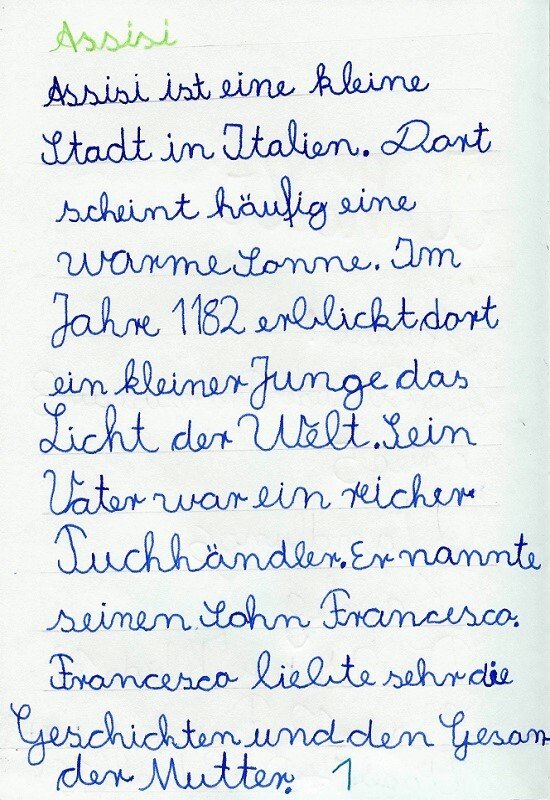 Assisi
Assisi ist eine kleine
Stadt in Italien. Dort
scheint häufig eine
warme Sonne. Im
Jahre 1182 erblickt dort
ein kleiner Junge das
Licht der Welt. Sein
Vater war ein reicher
Tuchhändler. Er nannte
seinen Sohn Francesco.
Francesco liebte sehr die
Geschichten und den Gesan
der Mutter. 1